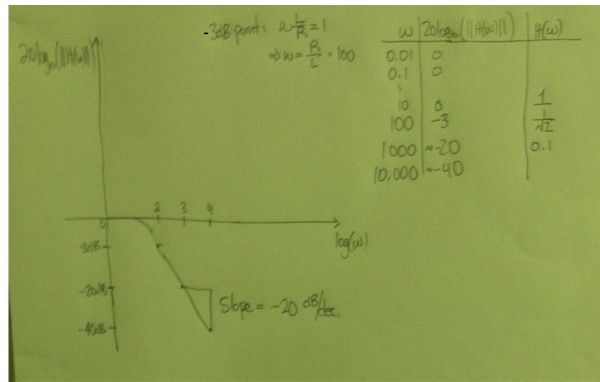 -3dB point: ω L/R = 1
⇒ ω = R/L = 100
20log₁₀(||H(ω)||)
ω | 20log₁₀(||H(ω)||) | H(ω)
0.01 | 0
0.1 | 0
⋮
10 | 0 | 1
100 | -3 | 1/√2
1000 | ~-20 | 0.1
10,000 | ~-40
0 2 3 4
log(ω)
3dB
-20dB
-40dB
Slope = -20 dB/dec.